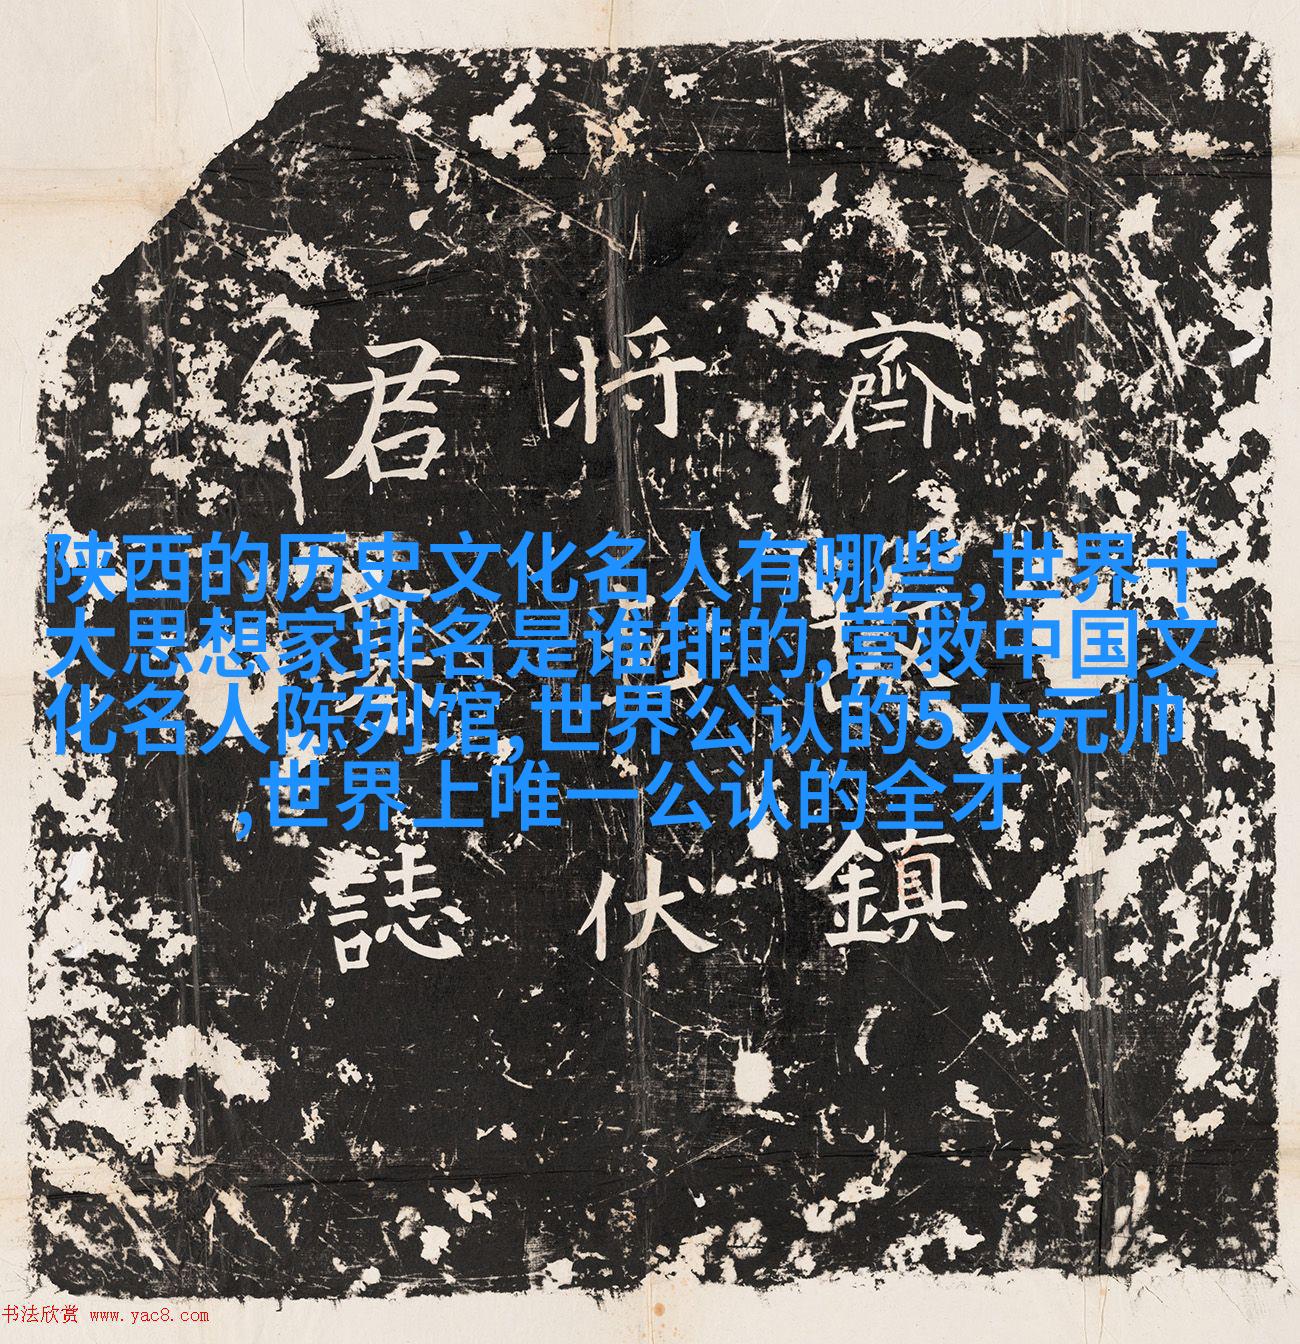 齊
鎮
将
伏
君
誌
陕西的历史文化名人有哪些,世界十
大思想家排名是谁排的,营救中国文
化名人陈列馆,世界公认的5大元帅
,世界上唯一公认的全才
书法欣赏 www.yac8.com